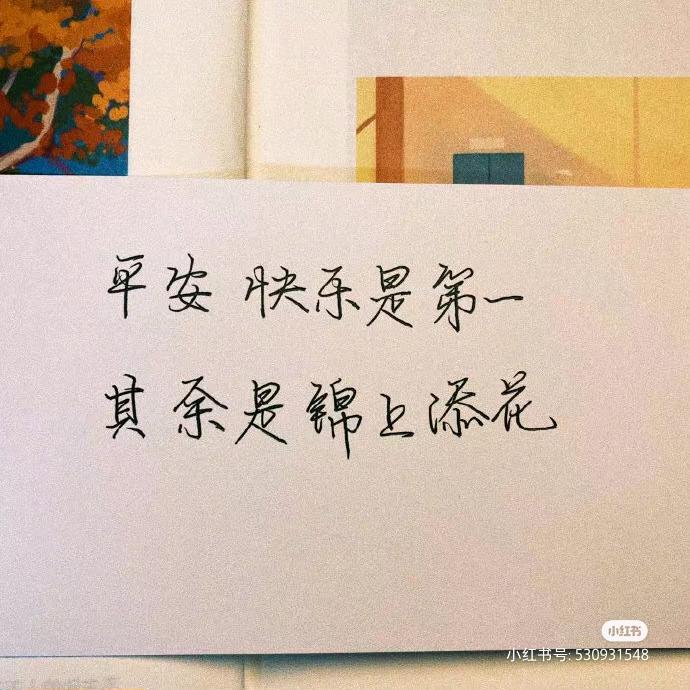 平安 快乐是第一
其余是锦上添花
小红书
小红书号: 530931548